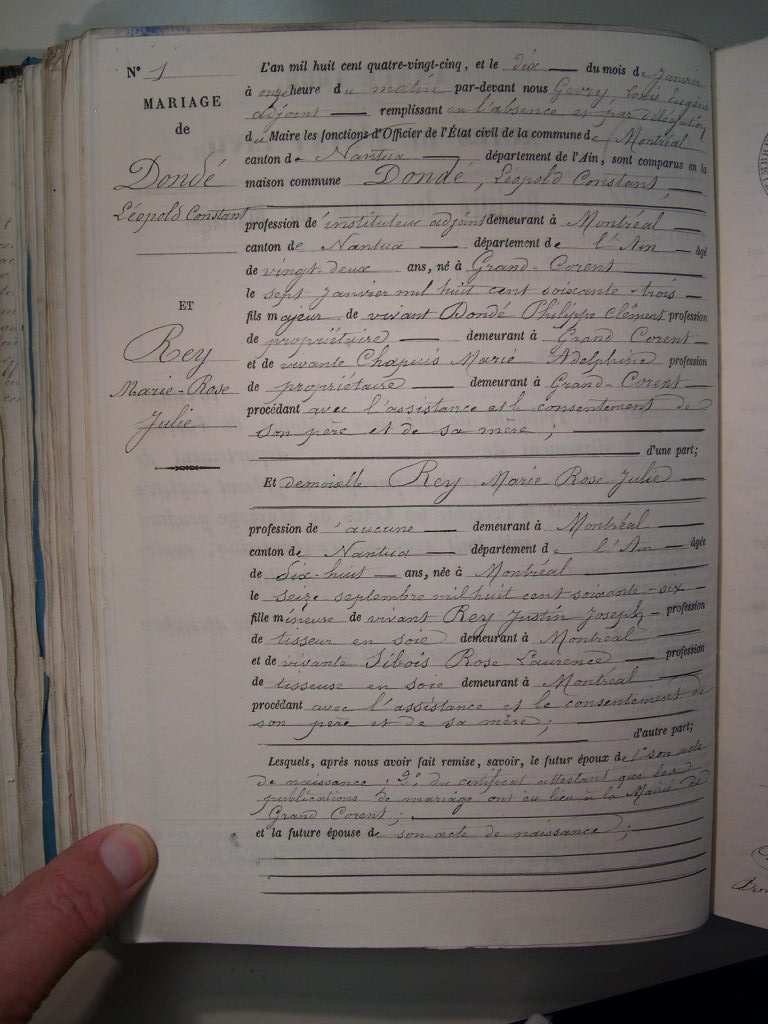 N° 1
MARIAGE
de
Dondé
Léopold Constant
ET
Rey
Marie-Rose
Julie
L'an mil huit cent quatre-vingt-cinq, et le dix du mois de janvier
à onze heure du matin par-devant nous Gavry, Louis Eugène
adjoint remplissant en l'absence et par délégation
du Maire les fonctions d'Officier de l'État civil de la commune de Montréal
canton de Nantua département de l'Ain, sont comparus en la
maison commune Dondé, Léopold Constant,
profession de instituteur adjoint demeurant à Montréal
canton de Nantua département de l'Ain âgé
de vingt-deux ans, né à Grand-Corent
le sept janvier mil huit cent soixante-trois
fils majeur de vivant Dondé Philippe Clément profession
de propriétaire demeurant à Grand Corent
et de vivante Chapuis Marie Adelphine profession
de propriétaire demeurant à Grand-Corent
procédant avec l'assistance et le consentement de
son père et de sa mère ;
d'une part;
Et demoiselle Rey Marie Rose Julie
profession de aucune demeurant à Montréal
canton de Nantua département de l'Ain âgée
de dix-huit ans, née à Montréal
le seize septembre mil huit cent soixante-six
fille mineuse de vivant Rey Justin Joseph profession
de tisseur en soie demeurant à Montréal
et de vivante Sibois Rose Laurence profession
de tisseuse en soie demeurant à Montréal
procédant avec l'assistance et le consentement de
son père et de sa mère ;
d'autre part;
Lesquels, après nous avoir fait remise, savoir, le futur époux de 1° son acte
de naissance ; 2° du certificat attestant que les
publications de mariage ont eu lieu à la Mairie de
Grand Corent ;
et la future épouse de son acte de naissance ;